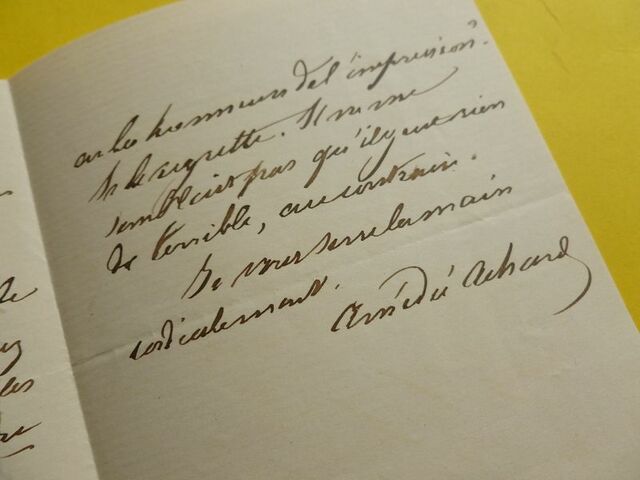 eu les honneurs de l'impression.
Je le regrette. Il ne me
semblait pas qu'il y eut rien
de terrible, au contraire.
Je vous serre la main
cordialement.
Amédée Achard